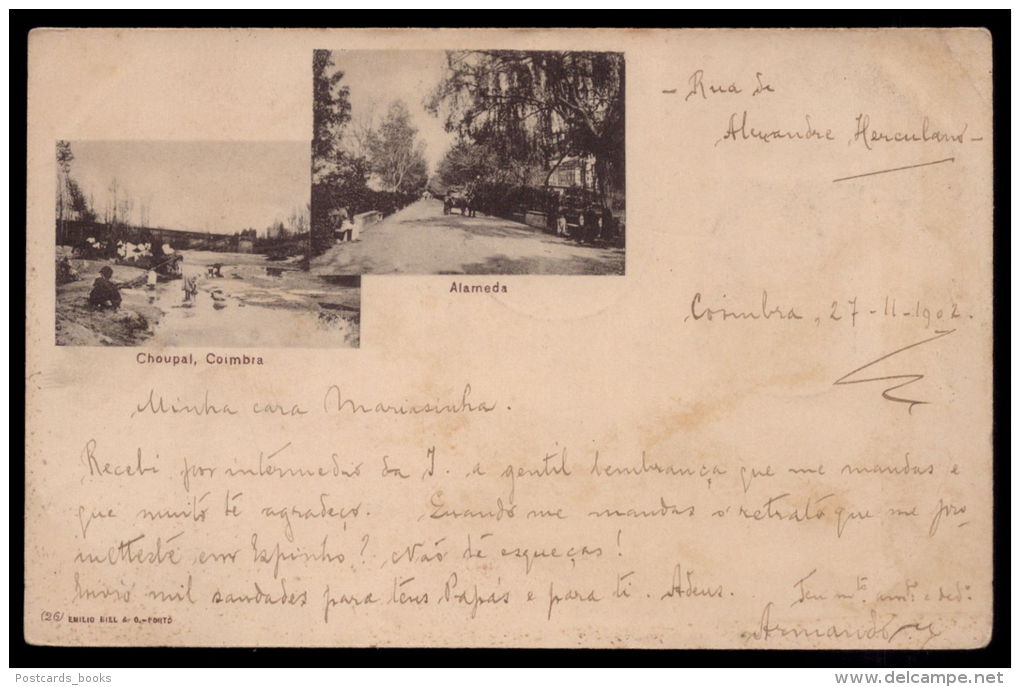 - Rua de
Alexandre Herculano -
Alameda
Coimbra, 27-11-1902.
Choupal, Coimbra
Minha cara Mariasinha.
Recebi por intermedio da J. a gentil lembrança que me mandas e
que muito te agradeço. Quando me mandas o retrato que me pro-
metteste em Espinho? Não te esqueças!
Envio mil saudades para teus Papás e para ti. Adeus. Teu mto. amo. e dedo.
Armando
(26) EMILIO BIEL & C.-PORTO
Postcards_books
www.delcampe.net